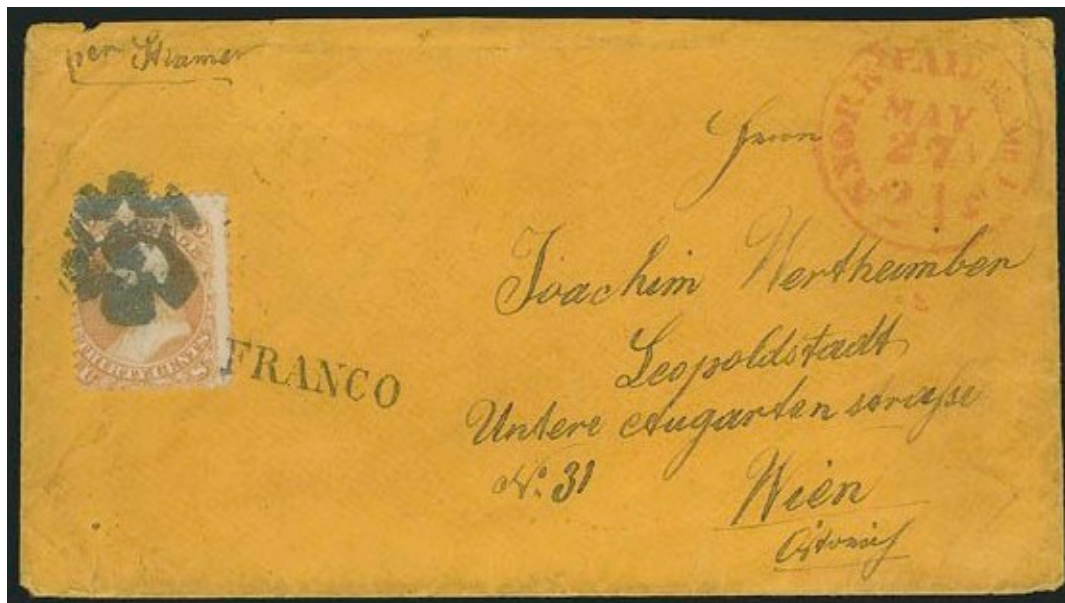 per Steamer
PAID
MAY
27
Herrn
Joachim Wertheimber
Leopoldstadt
Untere Augarten strasse
No. 31
Wien
FRANCO
CENTS